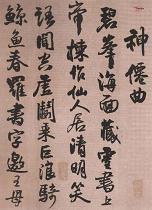 神僊曲
碧峯海面藏靈書上
帝揀作仙人居清明笑
語聞空虛鬪乘巨浪騎
鯨魚春羅書字邀王母